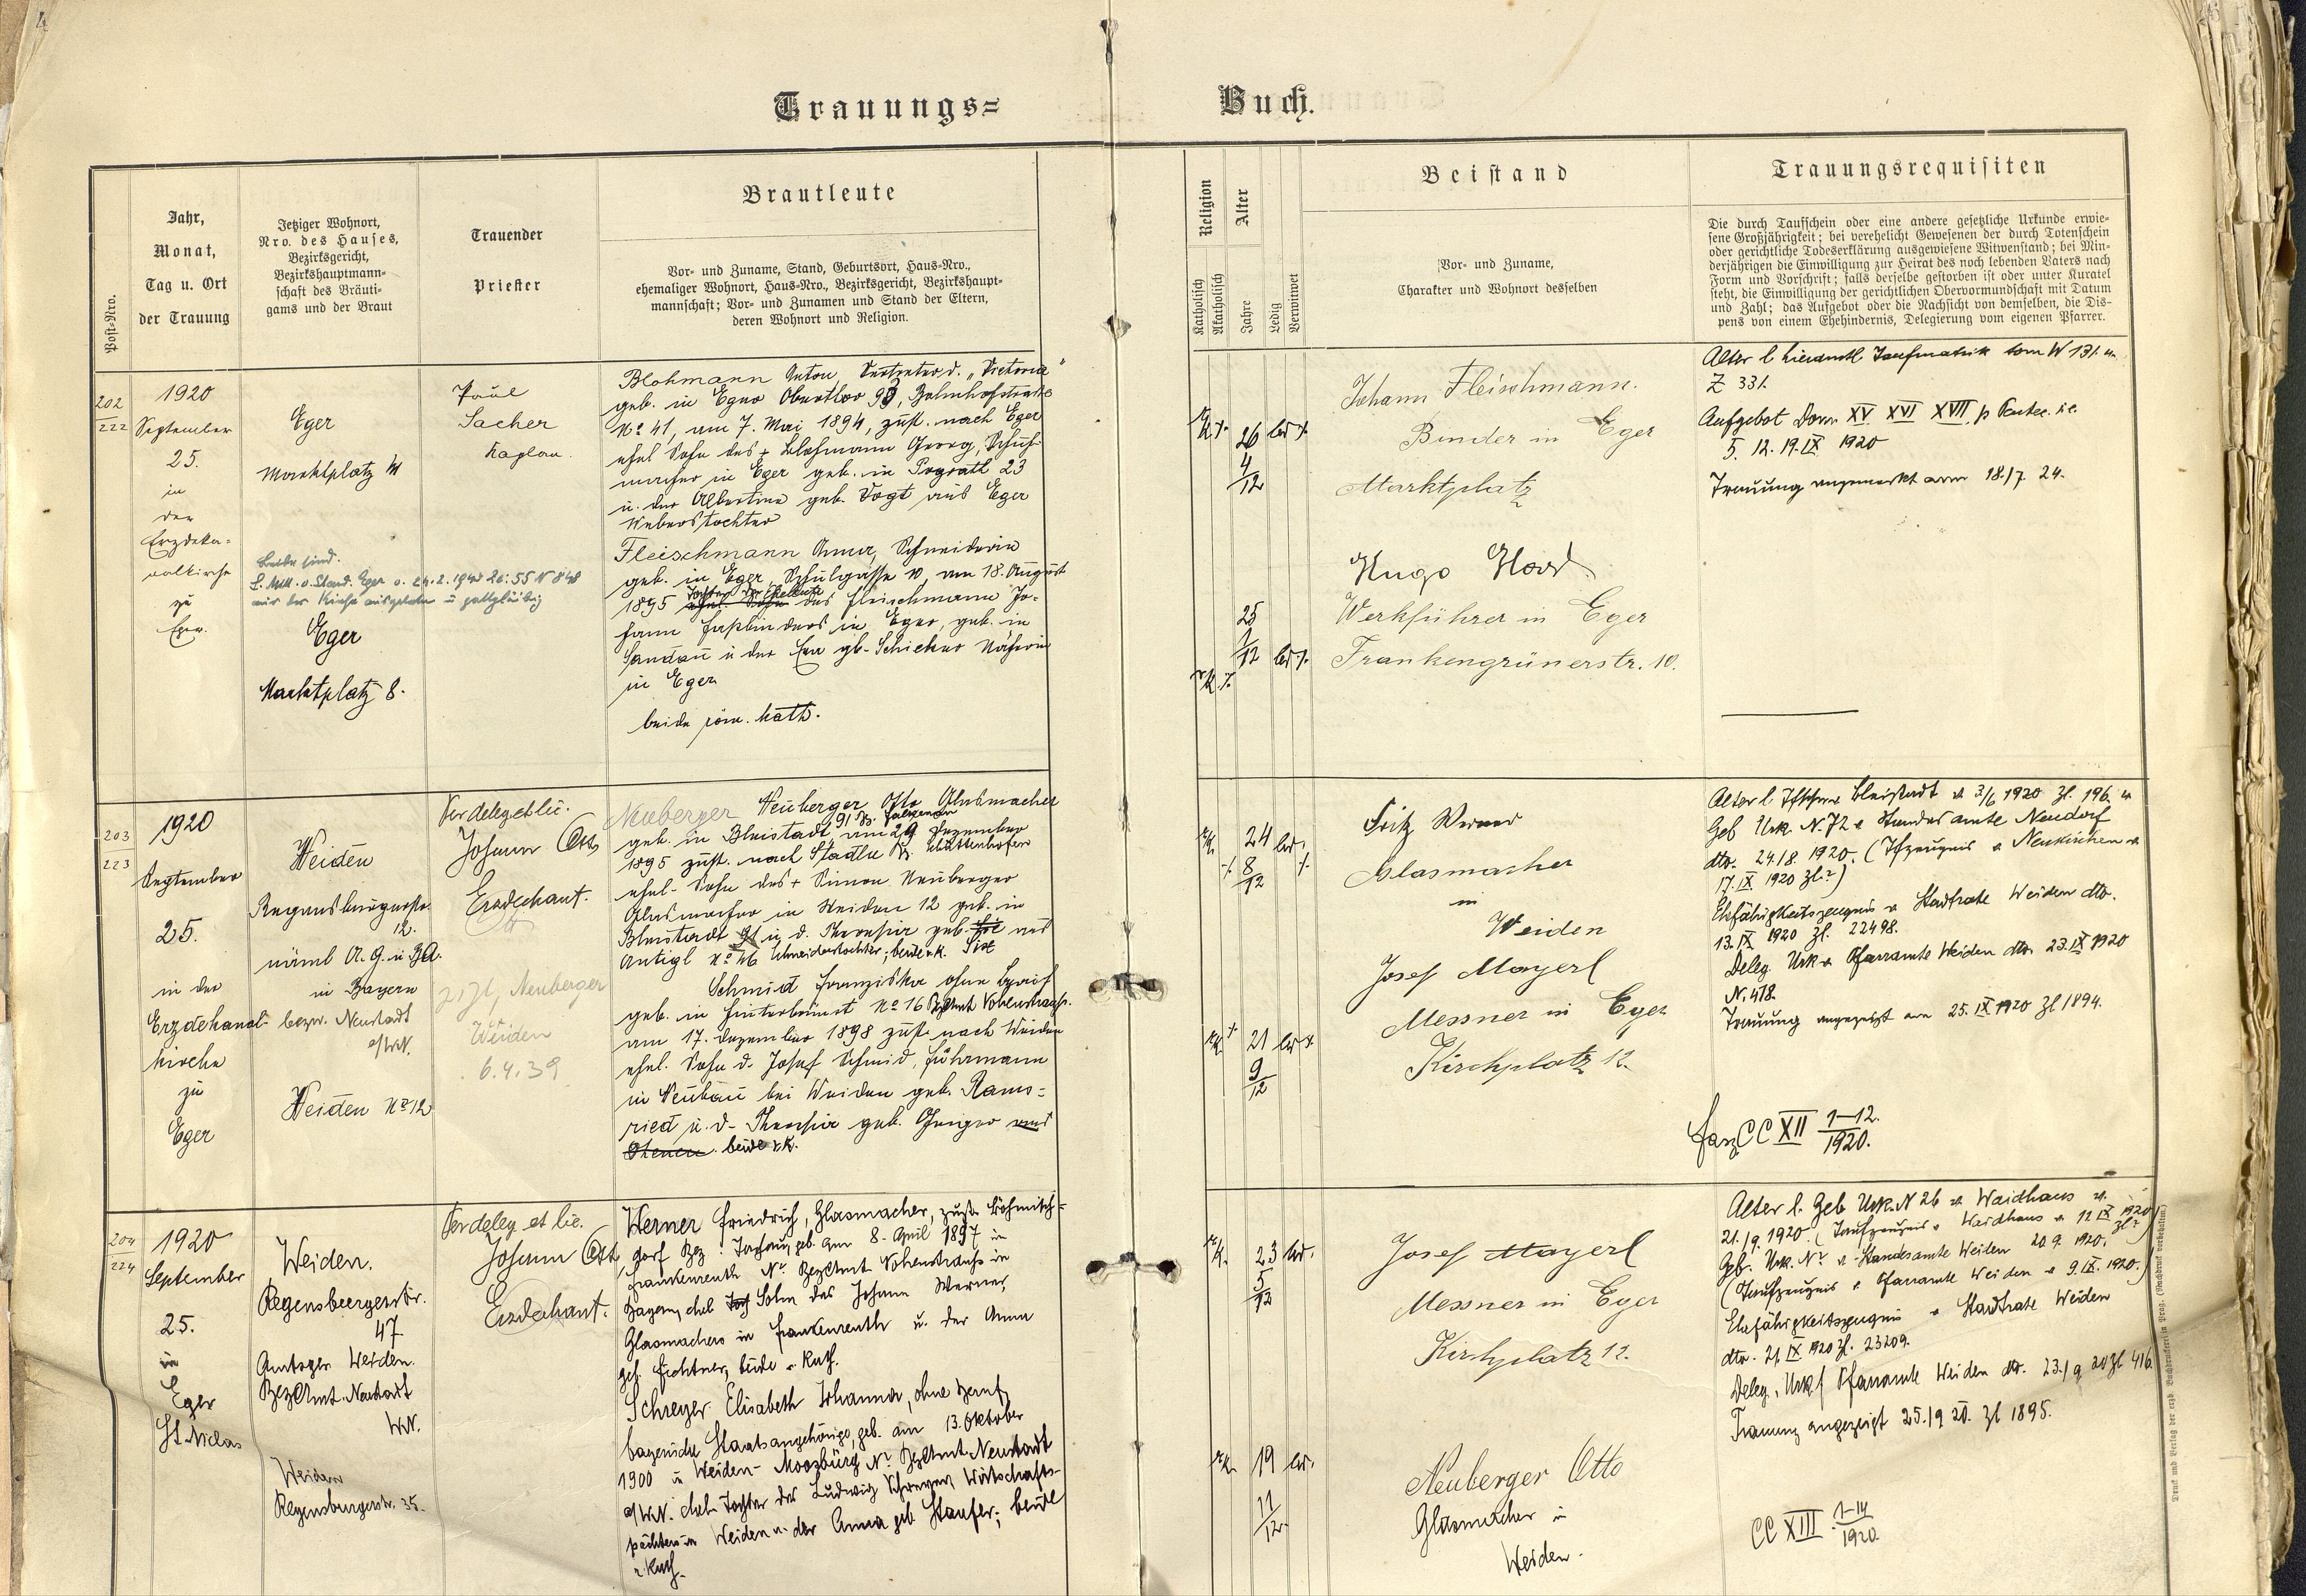 Trauungs=
Buch.
Post=Nro.
Jahr,
Monat,
Tag u. Ort
der Trauung
Jetziger Wohnort,
Nro. des Hauses,
Bezirksgericht,
Bezirkshauptmann=
schaft des Bräuti=
gams und der Braut
Trauender
Priester
Brautleute
Vor= und Zuname, Stand, Geburtsort, Haus=Nro.,
ehemaliger Wohnort, Haus=Nro., Bezirksgericht, Bezirkshaupt=
mannschaft; Vor= und Zunamen und Stand der Eltern,
deren Wohnort und Religion.
Religion
Katholisch
Akatholisch
Alter
Jahre
Ledig
Verwitwet
Beistand
Vor= und Zuname,
Charakter und Wohnort desselben
Trauungsrequisiten
Die durch Taufschein oder eine andere gesetzliche Urkunde erwie=
sene Großjährigkeit; bei verehelicht Gewesenen der durch Totenschein
oder gerichtliche Todeserklärung ausgewiesene Witwenstand; bei Min=
derjährigen die Einwilligung zur Heirat des noch lebenden Vaters nach
Form und Vorschrift; falls derselbe gestorben ist oder unter Kuratel
steht, die Einwilligung der gerichtlichen Obervormundschaft mit Datum
und Zahl; das Aufgebot oder die Nachsicht von demselben, die Dis=
pens von einem Ehehindernis, Delegierung vom eigenen Pfarrer.
202
222
1920
September
25.
in
der
Erzdeka=
nalkirche
zu
Eger.
Eger
Marktplatz
Eger
Marktplatz 8.
Paul
Sacher
Kaplan.
Blohmann Anton Vertreter d. „Victoria"
geb. in Eger Oberthor 93, Bahnhofstraße
No 41, am 7. Mai 1894, zust. nach Eger
ehel Sohn des + Blohmann Georg, Schuh-
macher in Eger geb. in Pograth 23
u. der Albertine geb. Vogt aus Eger
Weberstochter
Fleischmann Anna, Schneiderin
geb. in Eger, Schulgasse 10, am 18. August
1895 Tochter der Eheleute des Fleischmann Jo-
hann Faßbinders in Eger, geb. in
Sandau u der Eva gb. Schicker Näherin
in Eger
beide röm. kath.
26 led
4/12
25
1/12 led
Johann Fleischmann.
Binder in Eger
Marktplatz
Hugo
Werkführer in Eger
Frankengrünerstr. 10.
Alter l hieramtl Taufmatrik tom W 131. u.
Z 331.
Aufgebot Dom XV XVI XVII p Pentec. i.e.
5. 12. 19. IX. 1920
Trauung angemerkt am 18./7. 24.
203
223
1920
September
25.
in der
Erzdekanal-
kirche
zu
Eger
Weiden
Regensburgerstr.
12.
in Bayern
bezw. Neustadt
a/WN.
Weiden No 12
Per deleg et lic.
Johann Ott
Erzdechant.
Neuberger
Weiden
6.4.39
Neuberger Neuberger Otto Glasmacher
geb. in Bleistadt 91 Bz. Falkenau am 29 Dezember
1895 zust. nach Stadln Bz. Schüttenhofen
ehel. Sohn des + Simon Neuberger
Glasmacher in Weiden 12 geb. in
Bleistadt 91 u d. Theresia geb. aus
Antigl No 46 Schneiderstochter; beide r.k.
Schmid Franziska ohne Beruf
geb. in Hinterbrünst No 16 BzAmt Vohenstrauß.
am 17. Dezember 1898 zust nach Weiden
ehel. Sohn d. Josef Schmid, Fuhrmann
in Neubau bei Weiden geb. Rams=
ried u. d. Theresia geb. Geiger aus
beide r.k.
24 led.
8/12
21 led
9/12
Fritz Werner
Glasmacher
in
Weiden
Josef Mayerl
Messner in Eger
Kirchplatz 12.
Alter l Tfschein Bleistadt v 3/6 1920 Zl. 196. u
Geb Urk. N. 72 v Standesamte Neudorf
dto. 24./8. 1920. (Tfzeugnis v Neukirchen v
17. IX 1920 Zl. ?)
Ehefähigkeitszeugnis v Stadtrate Weiden dto.
13. IX 1920 Zl. 22498.
Deleg. Urk v Pfarramte Weiden dto. 23. IX 1920
N. 418.
Trauung angezeigt am 25. IX 1920 Zl 1894.
Fasz CC XII 1-12.
1920.
204
224
1920
September
25.
in
Eger
St. Niclas
Weiden.
Regensburgerstr.
47
Amtsger Weiden.
BezAmt. Neustadt
WN.
Weiden
Regensburgerstr. 35.
Per deleg et lic.
Johann Ott
Erzdechant.
Werner Friedrich, Glasmacher, zust. Böhmisch=
dorf Bez: Tachau, geb. am 8. April 1897 in
Frankenreuth Nr. BezAmt Vohenstrauß in
Bayern, ehel Sohn des Johann Werner,
Glasmachers in Frankenreuth u. der Anna
geb. Fichtner, beide r. Kath.
Schreyer Elisabeth Johanna, ohne Beruf,
bayerische Staatsangehörige, geb. am 13. Oktober
1900 in Weiden-Moosbürg Nr. BezAmt Neustadt
a/WN. ehel. Tochter des Ludwig Schreyer, Wirtschafts-
pächters in Weiden u. der Anna geb Staufer; beide
r. Kath.
23 led.
5/12
19 led.
11/12
Josef Mayerl
Messner in Eger
Kirchplatz 12.
Neuberger Otto
Glasmacher in
Weiden.
Alter l. Geb Urk. N 26 v. Waidhaus v.
21./9. 1920. (Taufzeugnis v Waidhaus v. 12 IX 1920 Zl ?)
Geb. Urk. Nr. v. Standesamte Weiden 20.9. 1920.
(Taufzeugnis v Pfarramte Weiden v 9. IX. 1920.)
Ehefähigkeitszeugnis v Stadtrate Weiden
dto. 21 IX 1920 Zl. 23209.
Deleg. Urk Pfarramte Weiden dto. 23./9 20 Zl 416.
Trauung angezeigt 25./9 20. Zl 1895.
CC XIII 1-14
1920.
Druck und Verlag der erzb. Buchdruckerei in Prag. (Nachdruck verboten.)